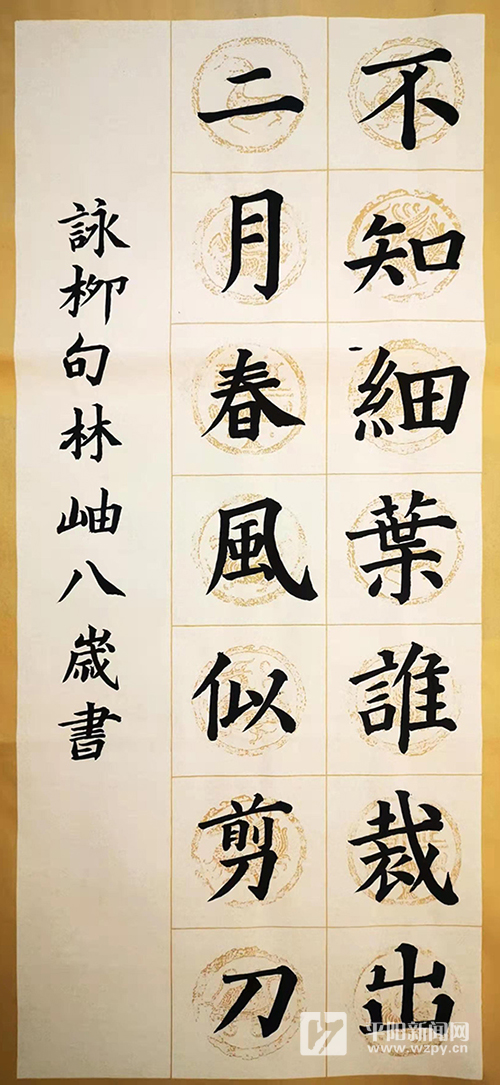 不知細葉誰裁出
二月春風似剪刀
詠柳句林岫八歲書
平阳新闻网
www.wzpy.cn